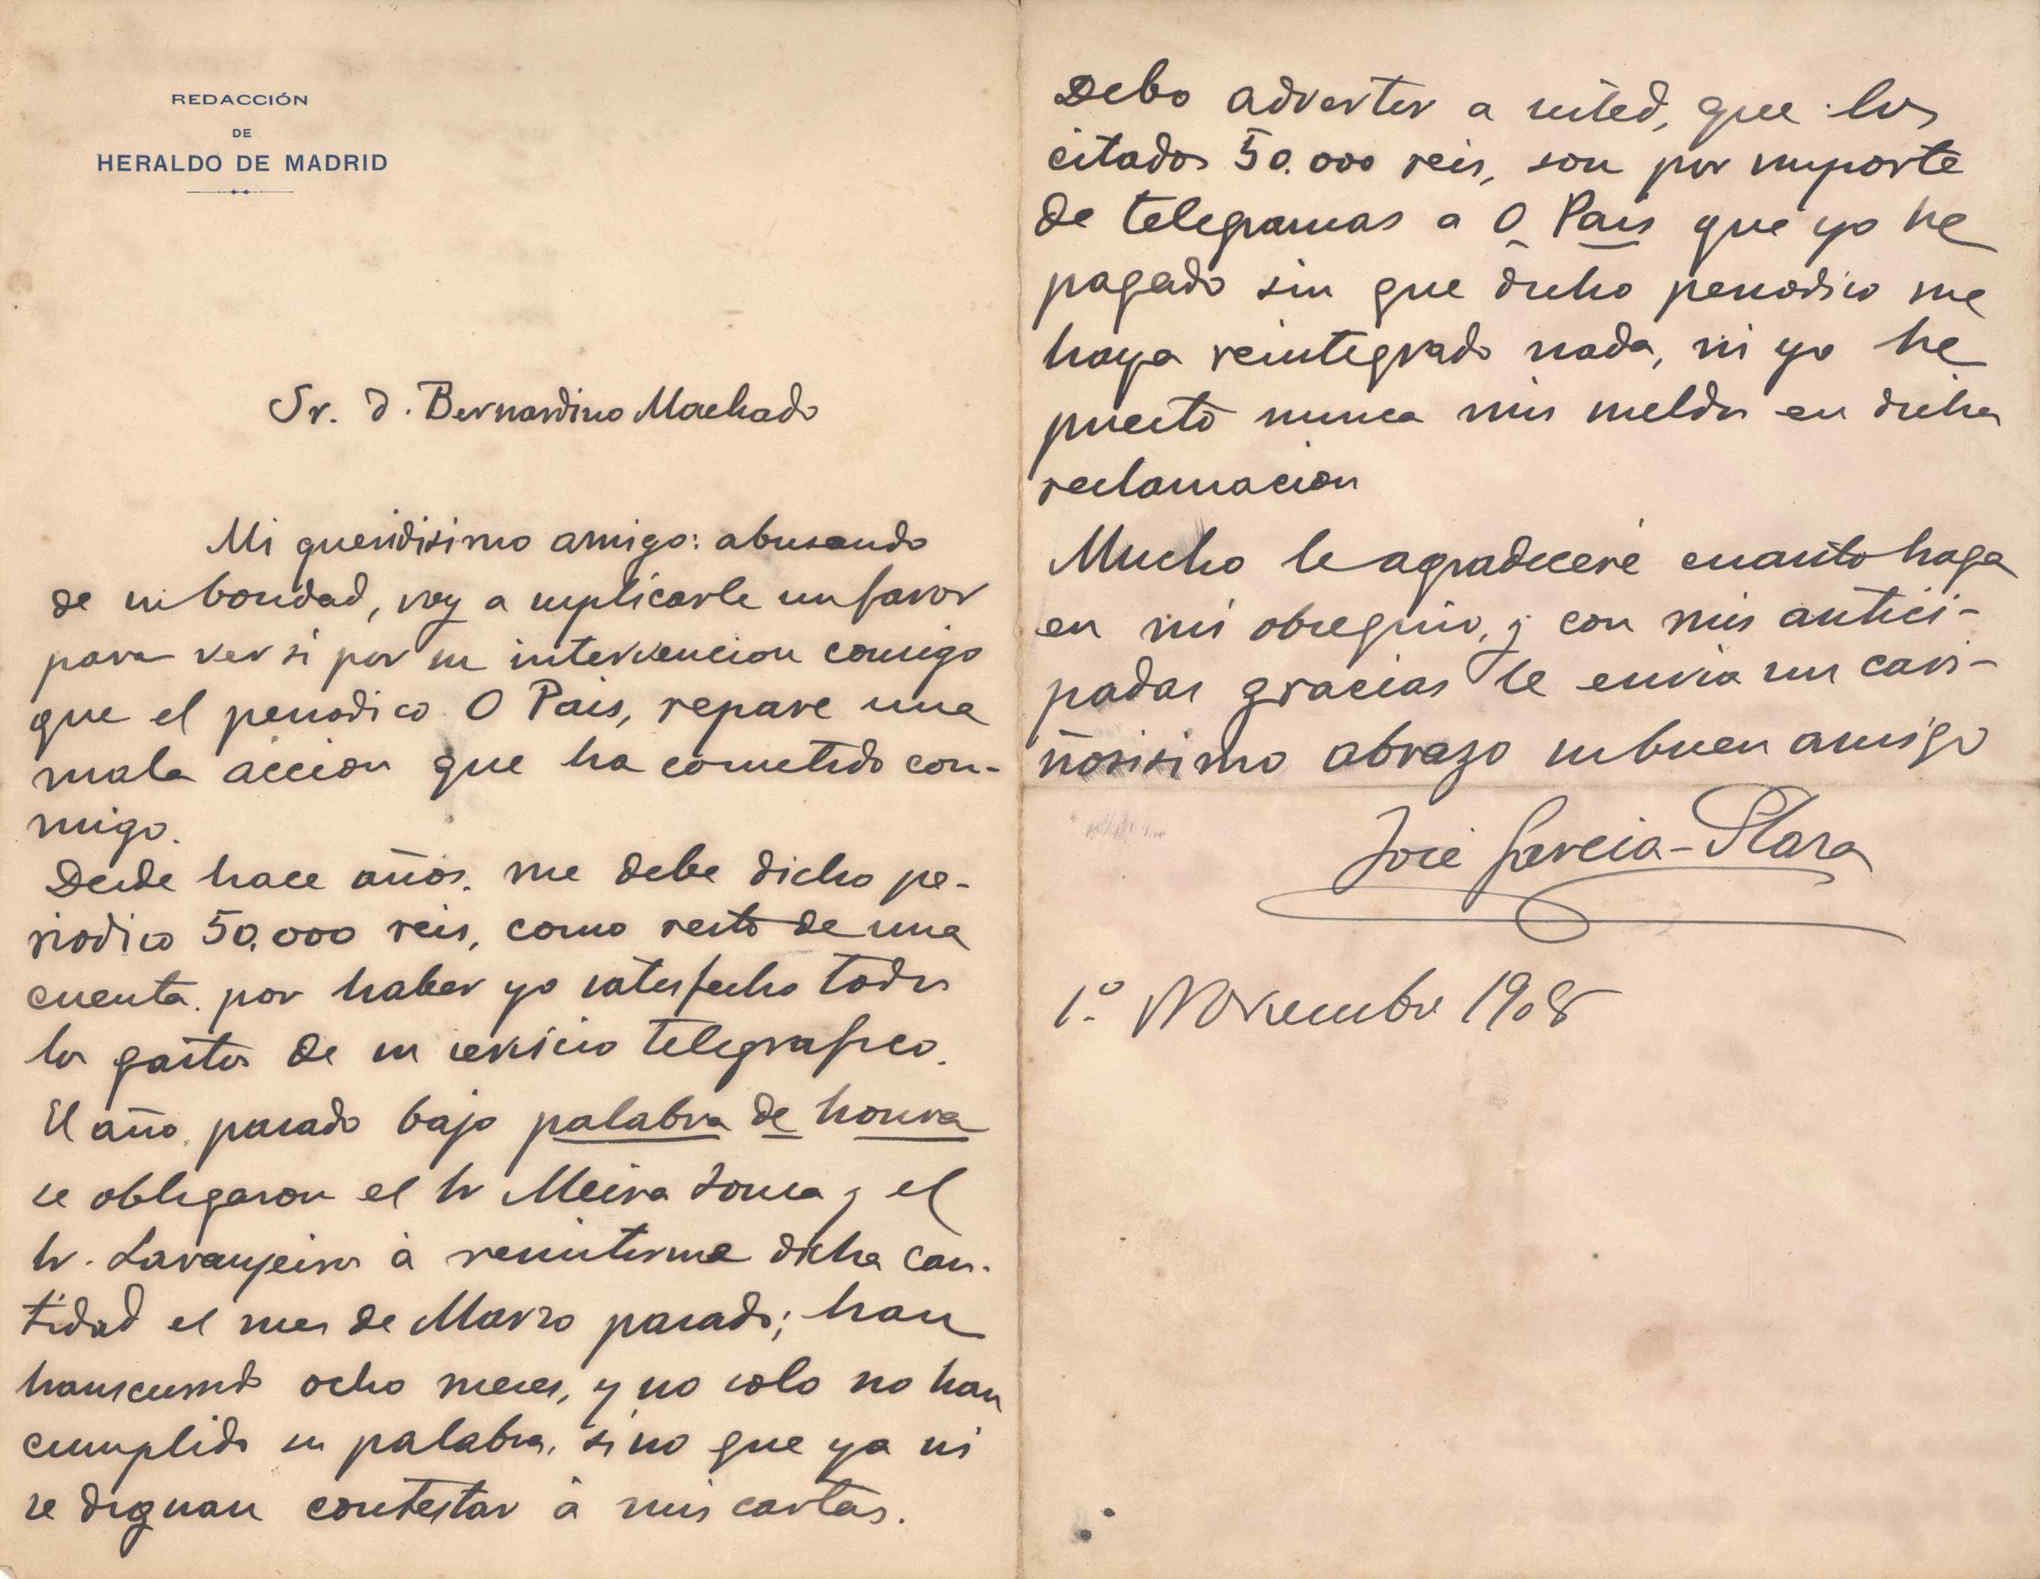 REDACCIÓN
DE
HERALDO DE MADRID
Sr. D. Bernardino Machado
Mi queridisimo amigo: abusando
de su bondad, voy a suplicarle un favor
para ver si por su intervencion consigo
que el periodico O Pais, repare una
mala accion que ha cometido con-
migo.
Desde hace años. me debe dicho pe-
riodico 50.000 reis, como resto de una
cuenta. por haber yo satisfecho todos
los gastos de su servicio telegrafico.
El año. pasado bajo palabra de honra
se obligaron el Sr Meira Sousa y el
Sr. Laranjeira à remitirme dicha can-
tidad el mes de Marzo pasado; han
transcurrido ocho meses, y no solo no han
cumplido su palabra, sino que ya ni
se dignan contestar à mis cartas.
Debo advertir a usted, que los
citados 50.000 reis, son por importe
de telegramas a O Pais que yo he
pagado sin que dicho periodico me
haya reintegrado nada, ni yo he
puesto nunca mis sueldos en dicha
reclamacion
Mucho le agradeceré cuanto haga
en mi obsequio, y con mis antici-
padas gracias le envia un cari-
ñosisimo abrazo su buen amigo
José Garcia-Plaza
1.º Noviembre 1908